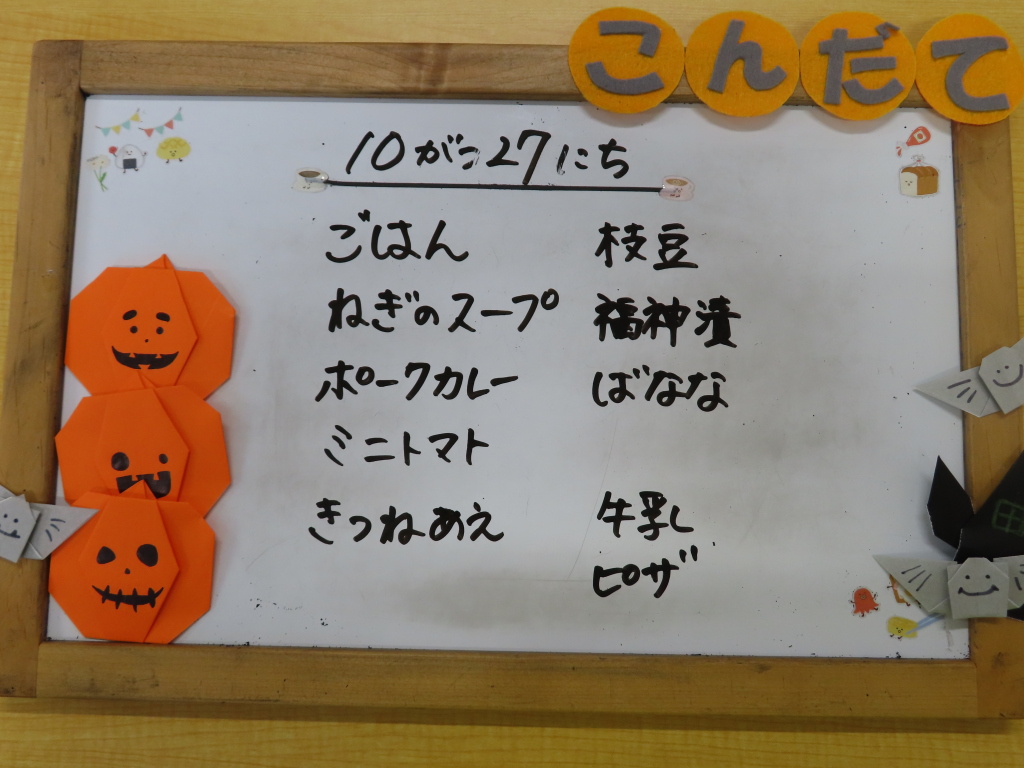 こんだて
10がつ27にち
ごはん
ねぎのスープ
ポークカレー
ミニトマト
きつねめえ
枝豆
福神漬
ばなな
牛乳
ピザ